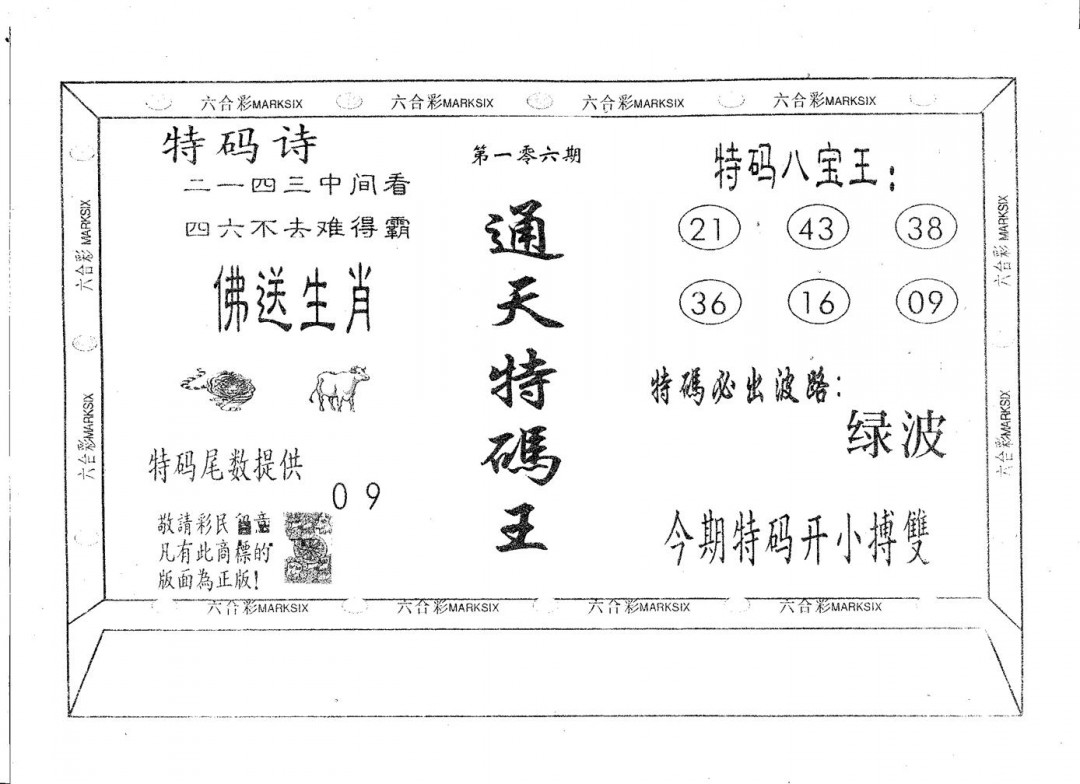 六合彩MARKSIX 六合彩MARKSIX 六合彩MARKSIX 六合彩MARKSIX
特码诗
二一四三中间看
四六不去难得霸
佛送生肖
特码尾数提供
0 9
敬請彩民留意
凡有此商標的
版面為正版!
第一零六期
通天特碼王
特码八宝王:
21 43 38
36 16 09
特碼必出波路:
绿波
今期特码开小搏雙
六合彩MARKSIX
六合彩MARKSIX
六合彩MARKSIX
六合彩MARKSIX
六合彩MARKSIX 六合彩MARKSIX 六合彩MARKSIX 六合彩MARKSIX